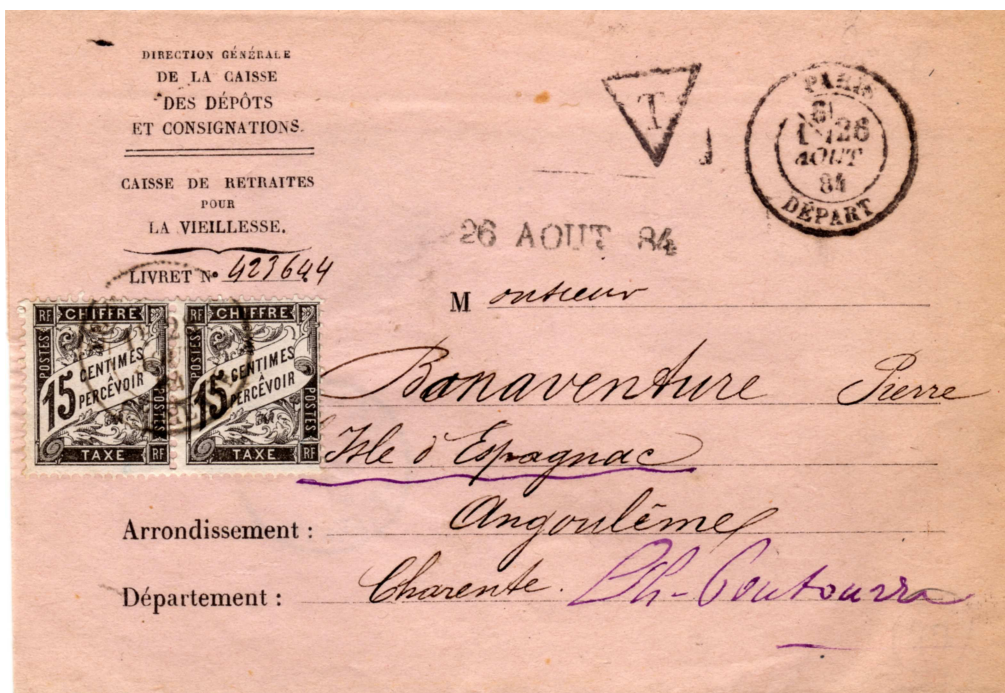 DIRECTION GÉNÉRALE
DE LA CAISSE
DES DÉPÔTS
ET CONSIGNATIONS.
CAISSE DE RETRAITES
POUR
LA VIEILLESSE.
LIVRET Nº 423644
T
PARIS
26
AOUT
84
DÉPART
26 AOUT 84
Monsieur
Bonaventure Pierre
Isle d'Espagnac
Arrondissement : Angoulême
Département : Charente.
RF CHIFFRE
POSTES
15 CENTIMES
À
PERCEVOIR
POSTES
TAXE RF
RF CHIFFRE
POSTES
15 CENTIMES
À
PERCEVOIR
POSTES
TAXE RF